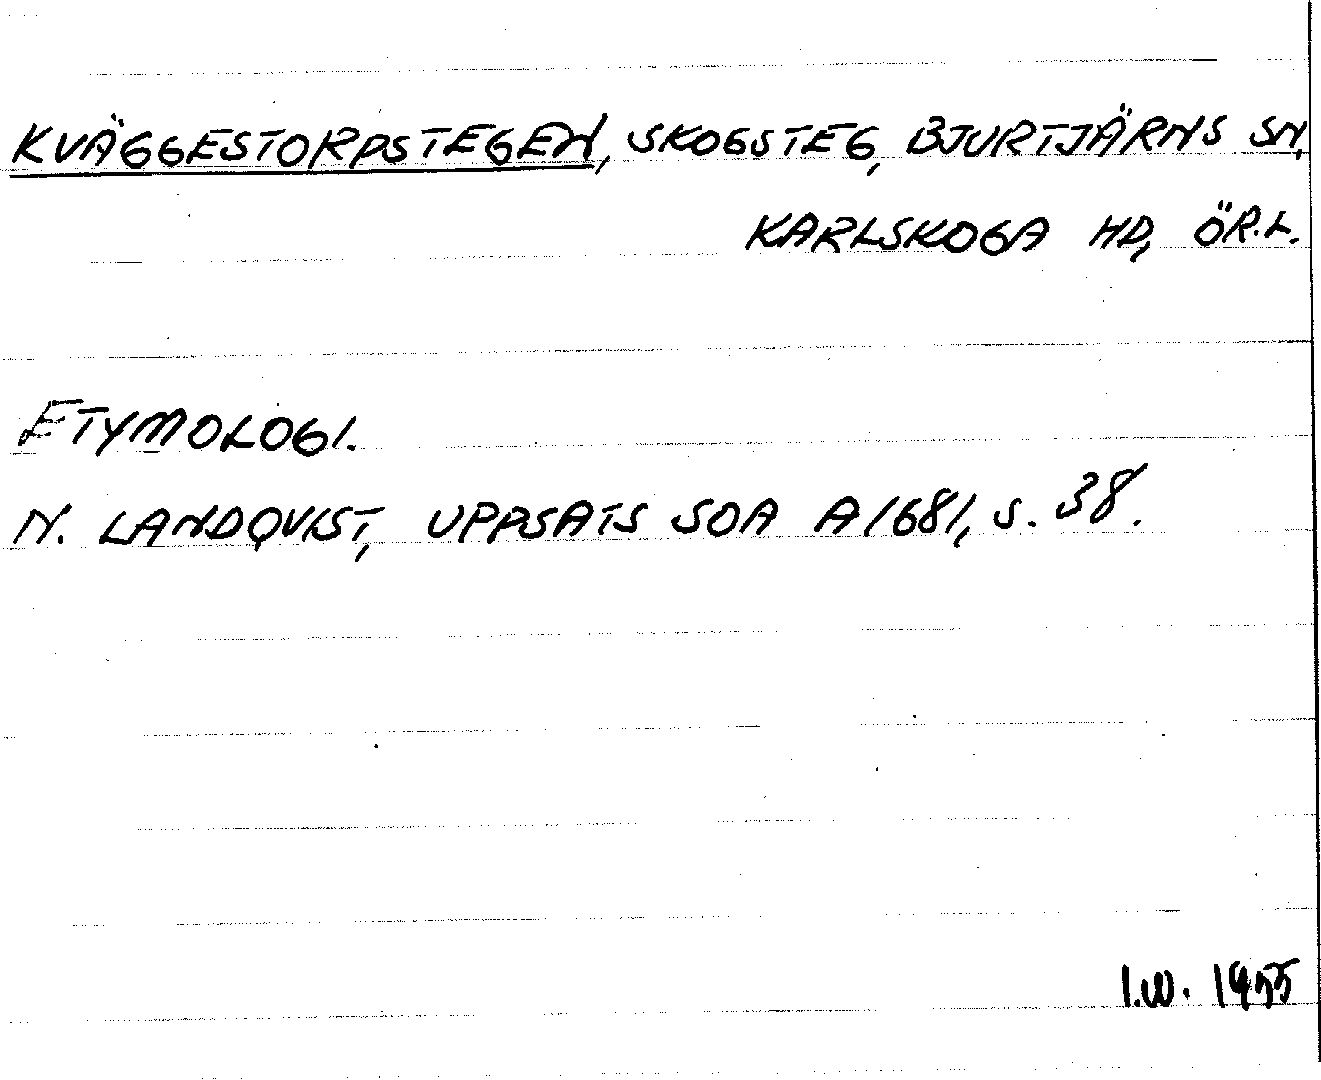 KVÄGGESTORPSTEGEN, SKOGSTEG, BJURTJÄRNS SN,
KARLSKOGA HD, ÖR.L.
ETYMOLOGI.
N. LANDQVIST, UPPSATS SOA A1681, s. 38.
I.W. 1955